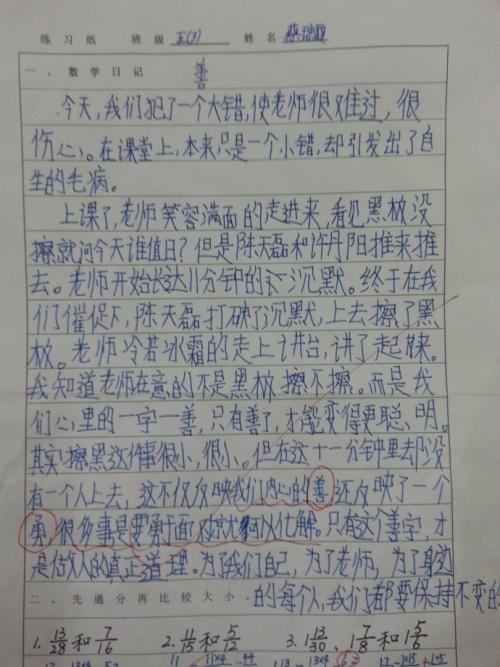 练习纸 班级 五(3) 姓名
一、数学日记 善
今天，我们犯了一个大错，使老师很难过，很
伤心。在课堂上，本来只是一个小错，却引发出了自
生的毛病。
上课了，老师笑容满面的走进来，看见黑板没
擦就问今天谁值日？但是陈天磊和许丹阳推来推
去。老师开始长达11分钟的沉默。终于在我
们催促下，陈天磊打破了沉默，上去擦了黑
板。老师冷若冰霜的走上讲台，讲了起来。
我知道老师在意的不是黑板擦不擦。而是我
们心里的一字一善，只有善了，才能变得更聪明。
其实擦黑这件事很小，很小。但在这十一分钟里却没
有一个人上去，这不仅反映我们内心的善还反映了一个
勇，很多事是要勇于面对
只有这个善字，才
是做人的真正道理。为了我们自己，为了老师，为了身边
的每个人，我们都要保持不变的
二、先通分再比较大小
1. 13/28 和 7/16 2. 11/15 和 5/12 3. 1 13/30、1 7/8 和 1 5/6